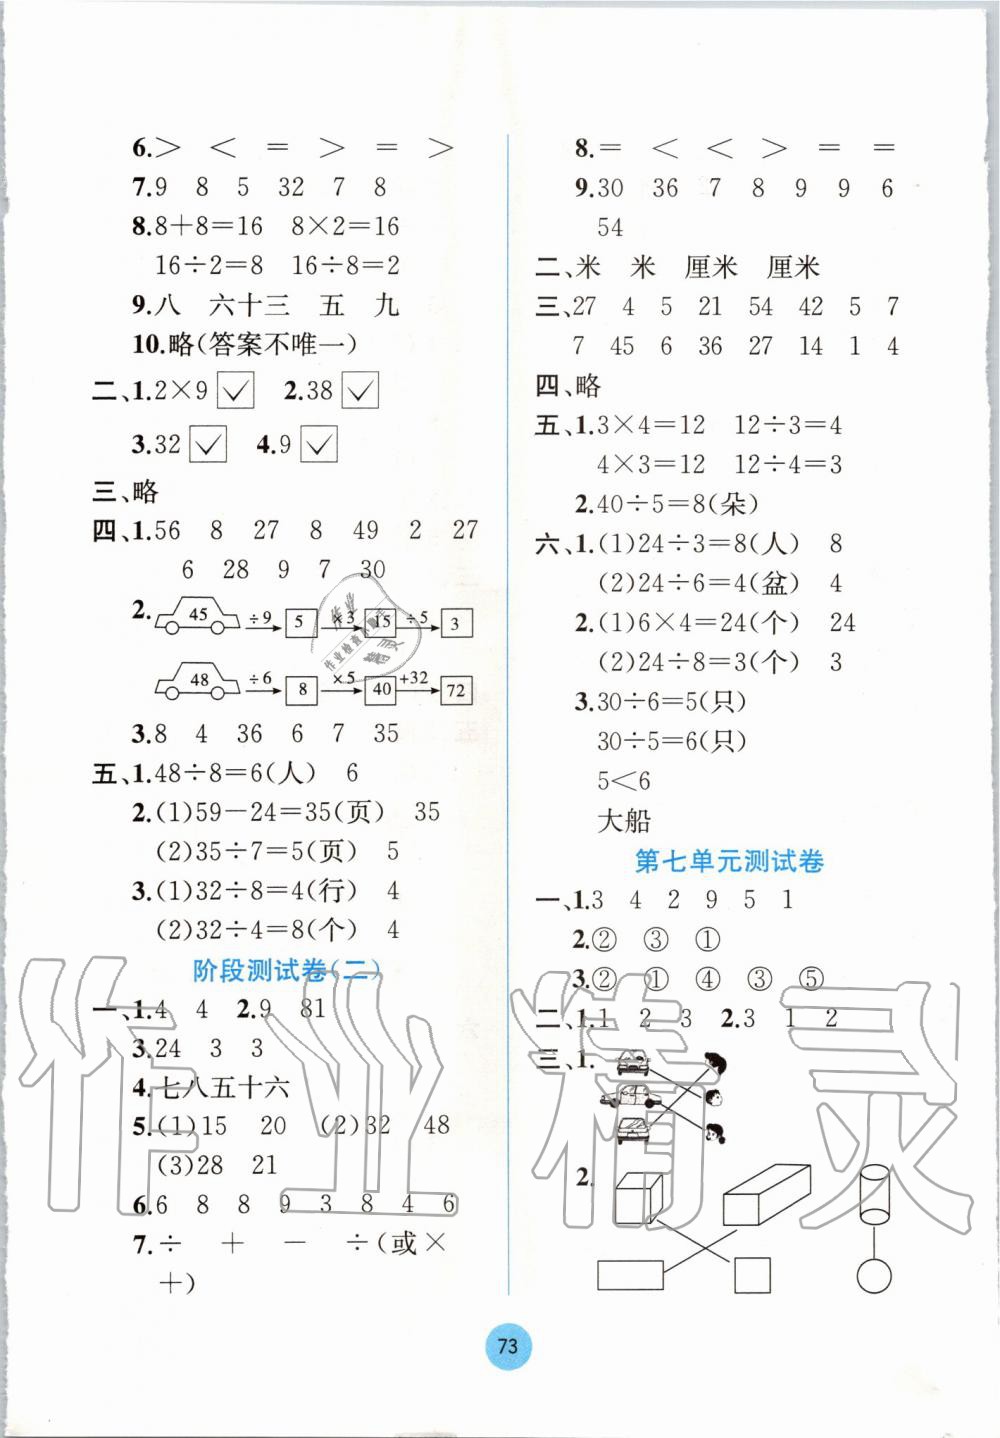 6.> < = > = >
7.9 8 5 32 7 8
8.8+8=16 8×2=16
16÷2=8 16÷8=2
9.八 六十三 五 九
10.略(答案不唯一)
二、1.2×9 ✓ 2.38 ✓
3.32 ✓ 4.9 ✓
三、略
四、1.56 8 27 8 49 2 27
6 28 9 7 30
2. 45 ÷9 5 ×3 15 ÷5 3
48 ÷6 8 ×5 40 +32 72
3.8 4 36 6 7 35
五、1.48÷8=6(人) 6
2.(1)59-24=35(页) 35
(2)35÷7=5(页) 5
3.(1)32÷8=4(行) 4
(2)32÷4=8(个) 4
阶段测试卷(二)
一、1.4 4 2.9 81
3.24 3 3
4.七八五十六
5.(1)15 20 (2)32 48
(3)28 21
6.6 8 8 9 3 8 4 6
7.÷ + - ÷(或×
+)
8.= < < > = =
9.30 36 7 8 9 9 6
54
二、米 米 厘米 厘米
三、27 4 5 21 54 42 5 7
7 45 6 36 27 14 1 4
四、略
五、1.3×4=12 12÷3=4
4×3=12 12÷4=3
2.40÷5=8(朵)
六、1.(1)24÷3=8(人) 8
(2)24÷6=4(盆) 4
2.(1)6×4=24(个) 24
(2)24÷8=3(个) 3
3.30÷6=5(只)
30÷5=6(只)
5<6
大船
第七单元测试卷
一、1.3 4 2 9 5 1
2.② ③ ①
3.② ① ④ ③ ⑤
二、1.1 2 3 2.3 1 2
三、1.
2.
73
作业精灵
作业
作业检查小助手
精灵